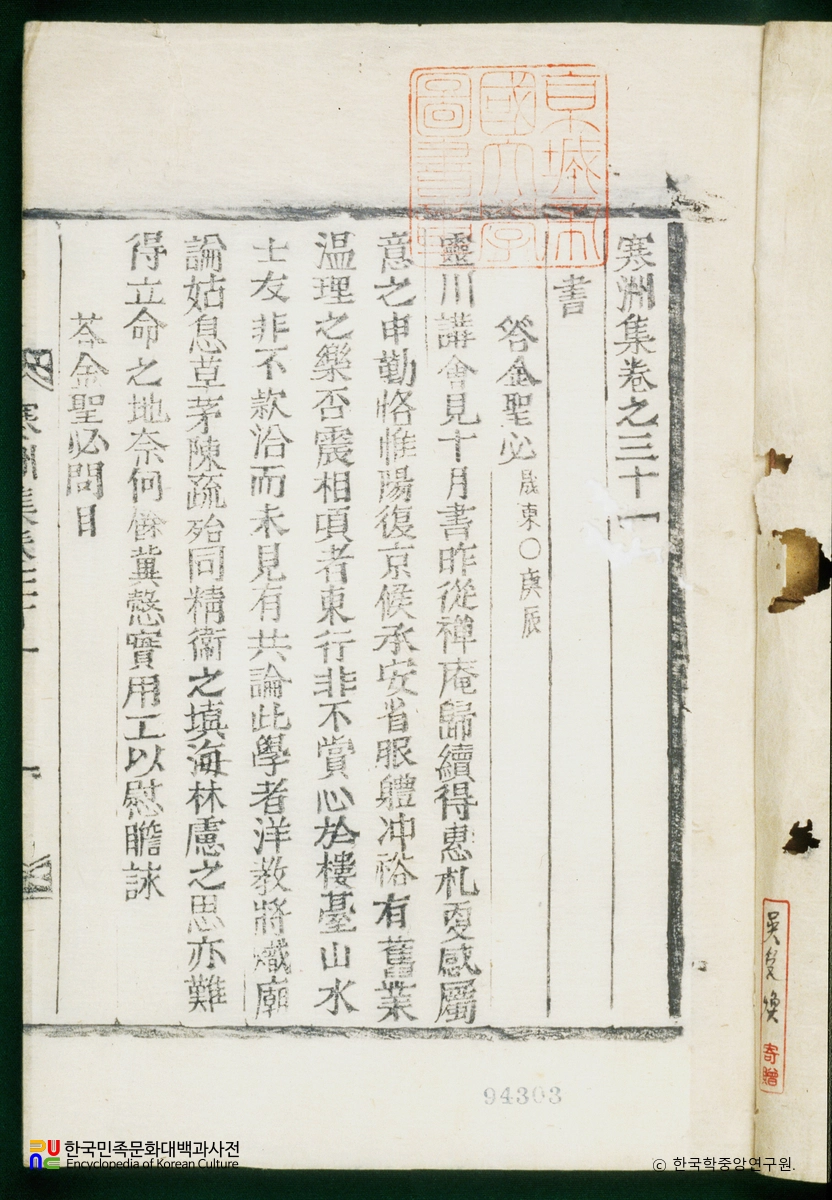 寒洲集卷之三十一
書
答金聖必 晟東○庚辰
靈川講會見十月書昨從禪庵歸續得惠札更感屬
意之申勤恪惟陽復京候承安省眼軆冲裕有舊業
温理之樂否震相頃者東行非不賞心於樓臺山水
士友非不款洽而未見有共論此學者洋教將熾廟
論姑息草茅陳疏殆同精衛之填海林慮之思亦難
得立命之地奈何餘冀慤實用工以慰瞻詠
答金聖必問目
寒洲集卷三十一
一
京城帝
國大學
圖書章
寄贈
94303
한국민족문화대백과사전
Encyclopedia of Korean Culture
© 한국학중앙연구원.